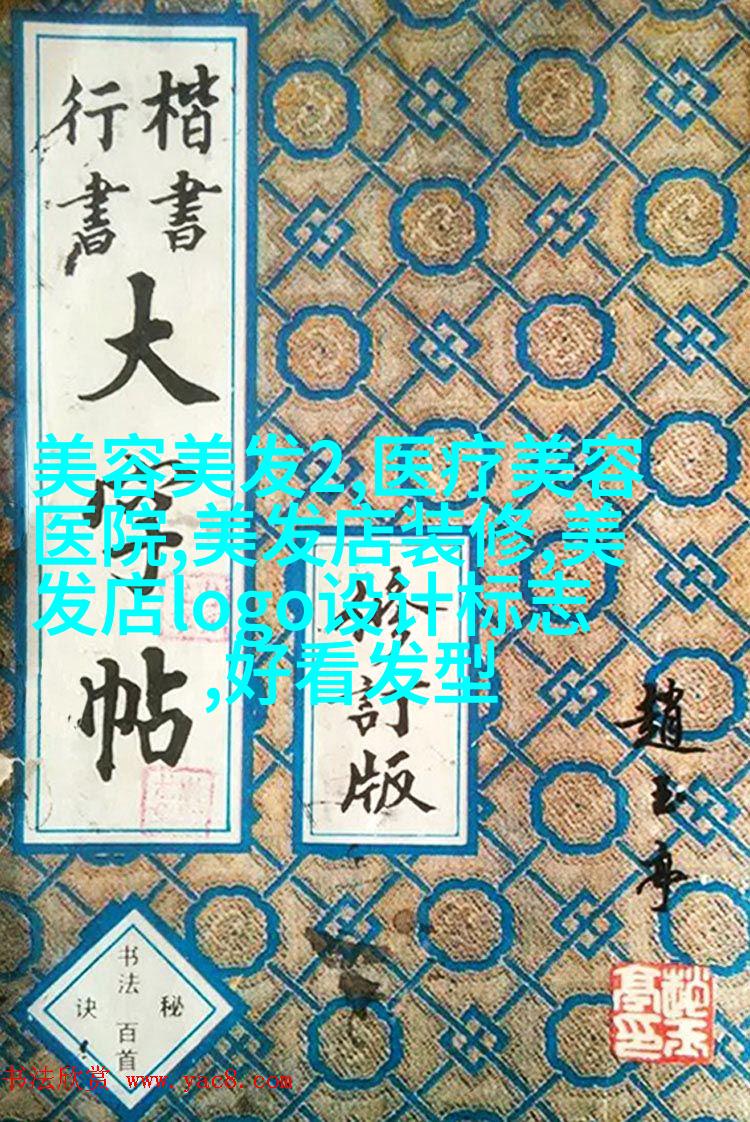 楷書
行書
大字帖
修訂版
趙玉亭
书法百首
秘诀
美容美发2,医疗美容
医院,美发店装修,美
发店logo设计标志
,好看发型
书法欣赏 www.yac8.com